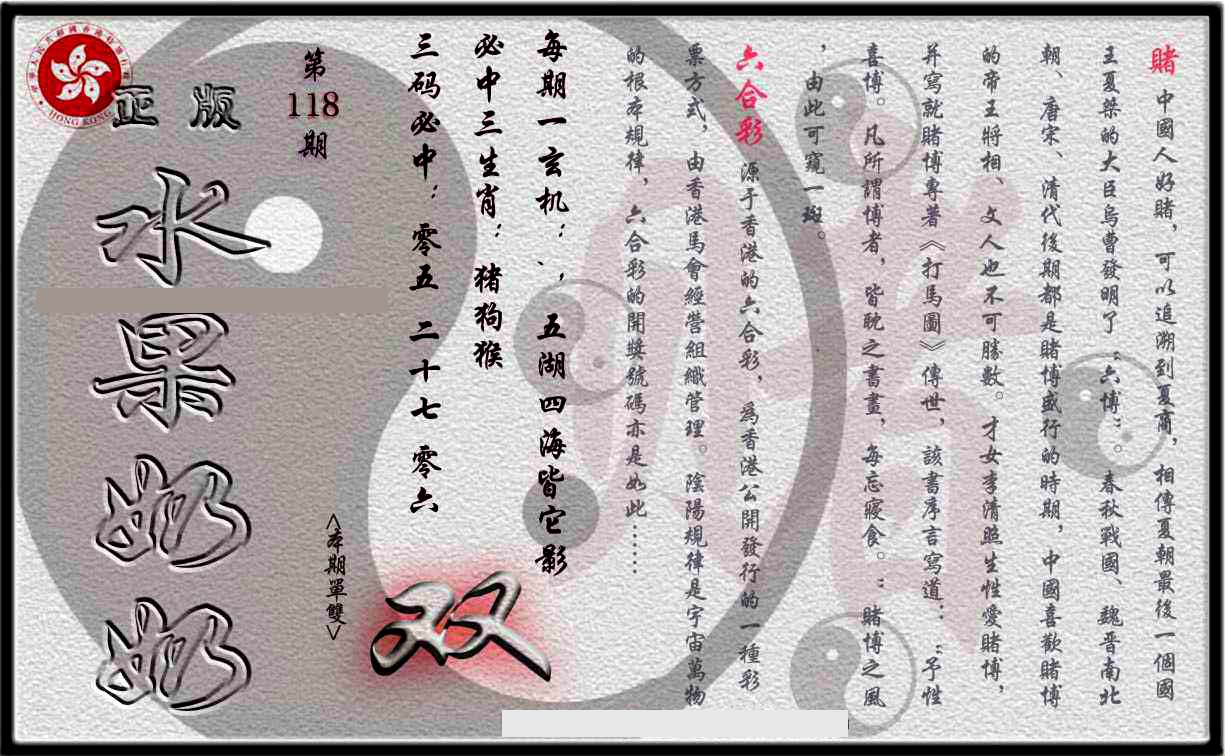 賭 中國人好賭，可以追溯到夏商，相傳夏朝最後一個國
王夏桀的大臣烏曹發明了“六博”。春秋戰國、魏晋南北
朝、唐宋、清代後期都是賭博盛行的時期，中國喜歡賭博
的帝王將相、文人也不可勝數。才女李清照生性愛賭博，
并寫就賭博專著《打馬圖》傳世，該書序言寫道：“予性
喜博。凡所謂博者，皆耽之晝畫，每忘寢食。”賭博之風
，由此可窺一斑。
六合彩 源于香港的六合彩，為香港公開發行的一種彩
票方式，由香港馬會經營組織管理。陰陽規律是宇宙萬物
的根本規律，六合彩的開獎號碼亦是如此……
每期一玄机：、，五湖四海皆它影
必中三生肖：猪狗猴
三码必中：零五 二十七 零六
第
118
期
正版
水果奶奶
<本期單雙>
双
HONG KONG